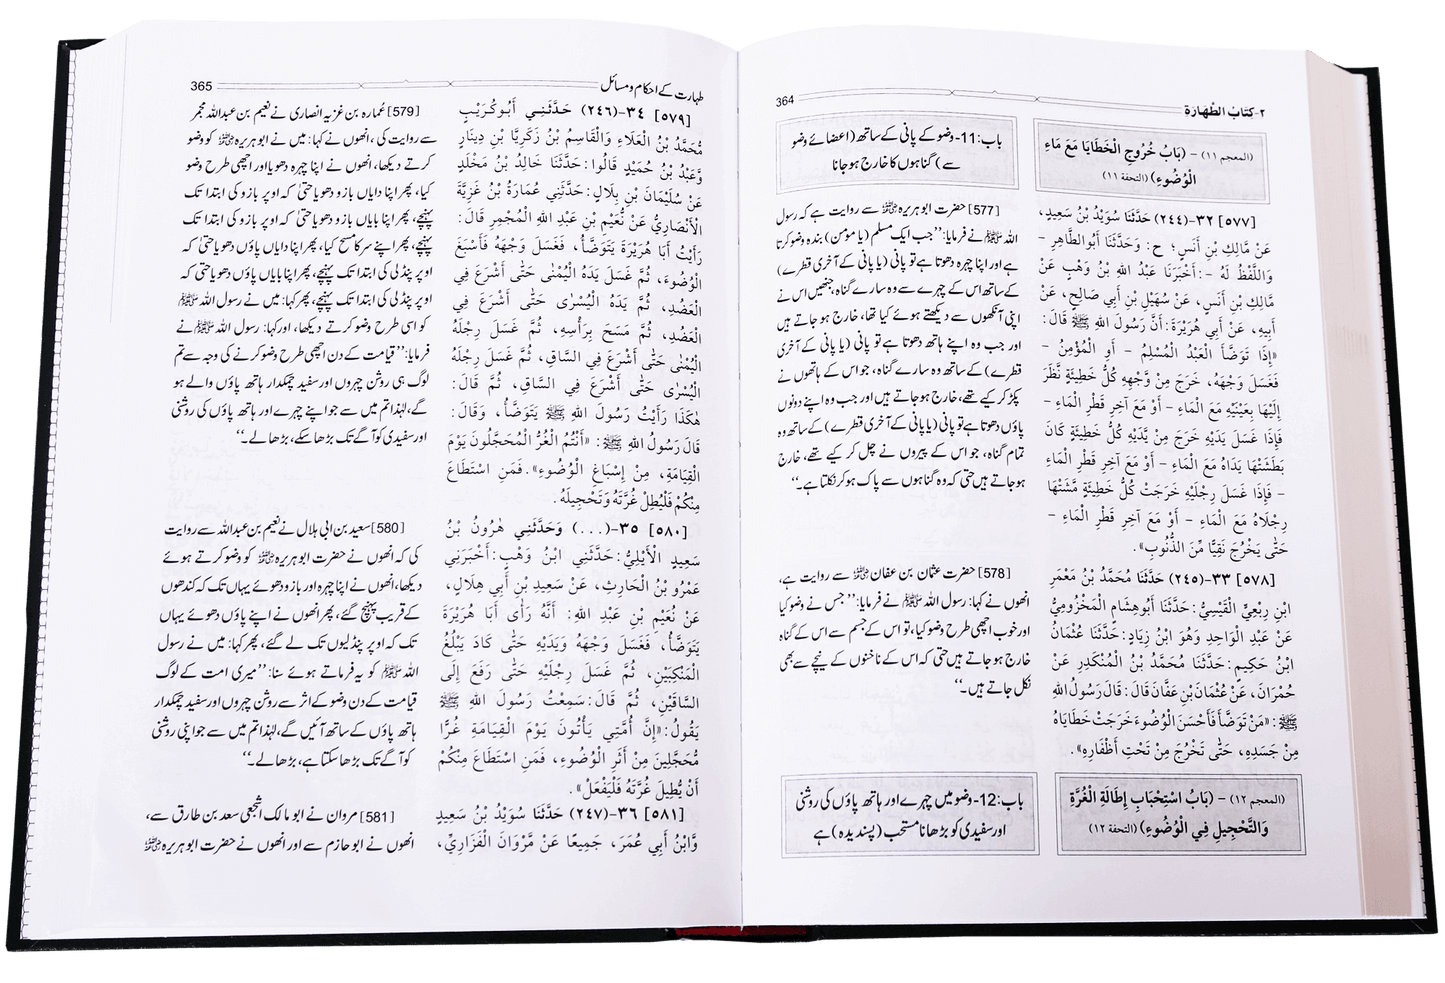 ٢-كتاب الطَّهارة
364
(المعجم ١١) - (بَابُ خُرُوجِ الْخَطَايَا مَعَ مَاءِ
الْوُضُوءِ) (التحفة ١١)
[٥٧٧] ٣٢-(٢٤٤) حَدَّثَنَا سُوَيْدُ بْنُ سَعِيدٍ،
عَنْ مَّالِكِ بْنِ أَنَسٍ؛ ح: وَحَدَّثَنَا أَبُو الطَّاهِرِ -
وَاللَّفْظُ لَهُ -: أَخْبَرَنَا عَبْدُ اللهِ بْنُ وَهْبٍ عَنْ
مَّالِكِ بْنِ أَنَسٍ، عَنْ سُهَيْلِ بْنِ أَبِي صَالِحٍ، عَنْ
أَبِيهِ، عَنْ أَبِي هُرَيْرَةَ: أَنَّ رَسُولَ اللهِ ﷺ قَالَ:
«إِذَا تَوَضَّأَ الْعَبْدُ الْمُسْلِمُ - أَوِ الْمُؤْمِنُ -
فَغَسَلَ وَجْهَهُ، خَرَجَ مِنْ وَّجْهِهِ كُلُّ خَطِيئَةٍ نَّظَرَ
إِلَيْهَا بِعَيْنَيْهِ مَعَ الْمَاءِ - أَوْ مَعَ آخِرِ قَطْرِ الْمَاءِ -
فَإِذَا غَسَلَ يَدَيْهِ خَرَجَ مِنْ يَّدَيْهِ كُلُّ خَطِيئَةٍ كَانَ
بَطَشَتْهَا يَدَاهُ مَعَ الْمَاءِ - أَوْ مَعَ آخِرِ قَطْرِ الْمَاءِ
- فَإِذَا غَسَلَ رِجْلَيْهِ خَرَجَتْ كُلُّ خَطِيئَةٍ مَّشَتْهَا
رِجْلَاهُ مَعَ الْمَاءِ - أَوْ مَعَ آخِرِ قَطْرِ الْمَاءِ -
حَتَّى يَخْرُجَ نَقِيًّا مِّنَ الذُّنُوبِ».
[٥٧٨] ٣٣-(٢٤٥) حَدَّثَنَا مُحَمَّدُ بْنُ مَعْمَرِ
ابْنِ رِبْعِيِّ الْقَيْسِيُّ: حَدَّثَنَا أَبُو هِشَامٍ الْمَخْزُومِيُّ
عَنْ عَبْدِ الْوَاحِدِ وَهُوَ ابْنُ زِيَادٍ: حَدَّثَنَا عُثْمَانُ
ابْنُ حَكِيمٍ: حَدَّثَنَا مُحَمَّدُ بْنُ الْمُنْكَدِرِ عَنْ
حُمْرَانَ، عَنْ عُثْمَانَ بْنِ عَفَّانَ قَالَ: قَالَ رَسُولُ اللهِ
ﷺ: «مَنْ تَوَضَّأَ فَأَحْسَنَ الْوُضُوءَ خَرَجَتْ خَطَايَاهُ
مِنْ جَسَدِهِ، حَتَّى تَخْرُجَ مِنْ تَحْتِ أَظْفَارِهِ».
(المعجم ١٢) - (بَابُ اسْتِحْبَابِ إِطَالَةِ الْغُرَّةِ
وَالتَّحْجِيلِ فِي الْوُضُوءِ) (التحفة ١٢)
باب:11-وضو کے پانی کے ساتھ (اعضائے وضو
سے) گناہوں کا خارج ہو جانا
[577] حضرت ابو ہریرہ رضی اللہ عنہ سے روایت ہے کہ رسول
اللہ ﷺ نے فرمایا: ’’جب ایک مسلم (یا مومن) بندہ وضو کرتا
ہے اور اپنا چہرہ دھوتا ہے تو پانی (یا پانی کے آخری قطرے)
کے ساتھ اس کے چہرے سے وہ سارے گناہ، جنھیں اس نے
اپنی آنکھوں سے دیکھتے ہوئے کیا تھا، خارج ہو جاتے ہیں
اور جب وہ اپنے ہاتھ دھوتا ہے تو پانی (یا پانی کے آخری
قطرے) کے ساتھ وہ سارے گناہ، جو اس کے ہاتھوں نے
پکڑ کر کیے تھے، خارج ہو جاتے ہیں اور جب وہ اپنے دونوں
پاؤں دھوتا ہے تو پانی (یا پانی کے آخری قطرے) کے ساتھ وہ
تمام گناہ، جو اس کے پیروں نے چل کر کیے تھے، خارج
ہو جاتے ہیں حتی کہ وہ گناہوں سے پاک ہو کر نکلتا ہے۔‘‘
[578] حضرت عثمان بن عفان رضی اللہ عنہ سے روایت ہے،
انھوں نے کہا: رسول اللہ ﷺ نے فرمایا: ’’جس نے وضو کیا
اور خوب اچھی طرح وضو کیا، تو اس کے جسم سے اس کے گناہ
خارج ہو جاتے ہیں حتی کہ اس کے ناخنوں کے نیچے سے بھی
نکل جاتے ہیں۔‘‘
باب:12-وضو میں چہرے اور ہاتھ پاؤں کی روشنی
اور سفیدی کو بڑھانا مستحب (پسندیدہ) ہے
طہارت کے احکام و مسائل
365
[٥٧٩] ٣٤-(٢٤٦) حَدَّثَنِي أَبُو كُرَيْبٍ
مُّحَمَّدُ بْنُ الْعَلَاءِ وَالْقَاسِمُ بْنُ زَكَرِيَّا بْنِ دِينَارٍ
وَّعَبْدُ بْنُ حُمَيْدٍ قَالُوا: حَدَّثَنَا خَالِدُ بْنُ مَخْلَدٍ
عَنْ سُلَيْمَانَ بْنِ بِلَالٍ: حَدَّثَنِي عُمَارَةُ بْنُ غَزِيَّةَ
الْأَنْصَارِيُّ عَنْ نُّعَيْمِ بْنِ عَبْدِ اللهِ الْمُجْمِرِ قَالَ:
رَأَيْتُ أَبَا هُرَيْرَةَ يَتَوَضَّأُ، فَغَسَلَ وَجْهَهُ فَأَسْبَغَ
الْوُضُوءَ، ثُمَّ غَسَلَ يَدَهُ الْيُمْنٰى حَتَّى أَشْرَعَ فِي
الْعَضُدِ، ثُمَّ يَدَهُ الْيُسْرٰى حَتَّى أَشْرَعَ فِي
الْعَضُدِ، ثُمَّ مَسَحَ بِرَأْسِهِ، ثُمَّ غَسَلَ رِجْلَهُ
الْيُمْنٰى حَتَّى أَشْرَعَ فِي السَّاقِ، ثُمَّ غَسَلَ رِجْلَهُ
الْيُسْرٰى حَتَّى أَشْرَعَ فِي السَّاقِ، ثُمَّ قَالَ:
هٰكَذَا رَأَيْتُ رَسُولَ اللهِ ﷺ يَتَوَضَّأُ، وَقَالَ:
قَالَ رَسُولُ اللهِ ﷺ: «أَنْتُمُ الْغُرُّ الْمُحَجَّلُونَ يَوْمَ
الْقِيَامَةِ، مِنْ إِسْبَاغِ الْوُضُوءِ». فَمَنِ اسْتَطَاعَ
مِنْكُمْ فَلْيُطِلْ غُرَّتَهُ وَتَحْجِيلَهُ.
[٥٨٠] ٣٥-(...) وَحَدَّثَنِي هٰرُونُ بْنُ
سَعِيدٍ الْأَيْلِيُّ: حَدَّثَنِي ابْنُ وَهْبٍ: أَخْبَرَنِي
عَمْرُو بْنُ الْحَارِثِ، عَنْ سَعِيدِ بْنِ أَبِي هِلَالٍ،
عَنْ نُعَيْمِ بْنِ عَبْدِ اللهِ: أَنَّهُ رَأَى أَبَا هُرَيْرَةَ
يَتَوَضَّأُ، فَغَسَلَ وَجْهَهُ وَيَدَيْهِ حَتَّى كَادَ يَبْلُغُ
الْمَنْكِبَيْنِ، ثُمَّ غَسَلَ رِجْلَيْهِ حَتَّى رَفَعَ إِلَى
السَّاقَيْنِ، ثُمَّ قَالَ: سَمِعْتُ رَسُولَ اللهِ ﷺ
يَقُولُ: «إِنَّ أُمَّتِي يَأْتُونَ يَوْمَ الْقِيَامَةِ غُرًّا
مُّحَجَّلِينَ مِنْ أَثَرِ الْوُضُوءِ، فَمَنِ اسْتَطَاعَ مِنْكُمْ
أَنْ يُّطِيلَ غُرَّتَهُ فَلْيَفْعَلْ».
[٥٨١] ٣٦-(٢٤٧) حَدَّثَنَا سُوَيْدُ بْنُ سَعِيدٍ
وَّابْنُ أَبِي عُمَرَ، جَمِيعًا عَنْ مَّرْوَانَ الْفَزَارِيِّ،
[579] عُمارہ بن غزیہ انصاری نے نعیم بن عبداللہ مجمر
سے روایت کی، انھوں نے کہا: میں نے ابو ہریرہ رضی اللہ عنہ کو وضو
کرتے دیکھا، انھوں نے اپنا چہرہ دھویا اور اچھی طرح وضو
کیا، پھر اپنا دایاں بازو دھویا حتی کہ اوپر بازو کی ابتدا تک
پہنچے، پھر اپنا بایاں بازو دھویا حتی کہ اوپر بازو کی ابتدا تک
پہنچے، پھر اپنے سر کا مسح کیا، پھر اپنا دایاں پاؤں دھویا حتی کہ
اوپر پنڈلی کی ابتدا تک پہنچے، پھر اپنا بایاں پاؤں دھویا حتی کہ
اوپر پنڈلی کی ابتدا تک پہنچے، پھر کہا: میں نے رسول اللہ ﷺ
کو اسی طرح وضو کرتے دیکھا، اور کہا: رسول اللہ ﷺ نے
فرمایا: ’’قیامت کے دن اچھی طرح وضو کرنے کی وجہ سے تم
لوگ ہی روشن چہروں اور سفید چمکدار ہاتھ پاؤں والے ہو
گے، لہٰذا تم میں سے جو اپنے چہرے اور ہاتھ پاؤں کی روشنی
اور سفیدی کو آگے تک بڑھا سکے، بڑھا لے۔‘‘
[580] سعید بن ابی ہلال نے نعیم بن عبداللہ سے روایت
کی کہ انھوں نے حضرت ابو ہریرہ رضی اللہ عنہ کو وضو کرتے ہوئے
دیکھا، انھوں نے اپنا چہرہ اور بازو دھوئے یہاں تک کہ کندھوں
کے قریب پہنچ گئے، پھر انھوں نے اپنے پاؤں دھوئے یہاں
تک کہ اوپر پنڈلیوں تک لے گئے، پھر کہا: میں نے رسول
اللہ ﷺ کو یہ فرماتے ہوئے سنا: ’’میری امت کے لوگ
قیامت کے دن وضو کے اثر سے روشن چہروں اور سفید چمکدار
ہاتھ پاؤں کے ساتھ آئیں گے، لہٰذا تم میں سے جو اپنی روشنی
کو آگے تک بڑھا سکتا ہے، بڑھا لے۔‘‘
[581] مروان نے ابو مالک اشجعی سعد بن طارق سے،
انھوں نے ابو حازم سے اور انھوں نے حضرت ابو ہریرہ رضی اللہ عنہ